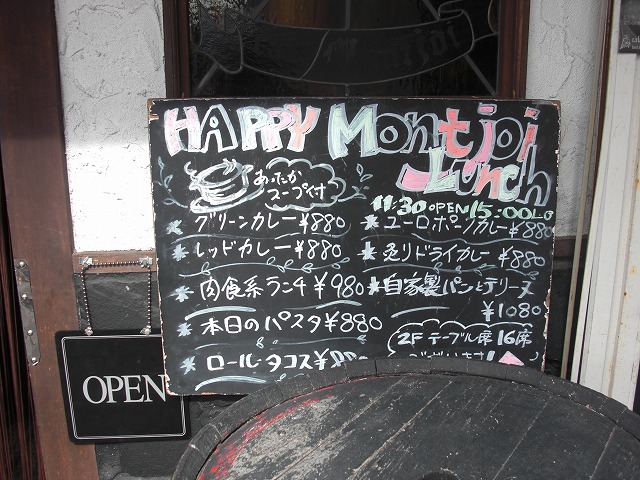 HAPPY Montjoi
Lunch
あったか
スープ付
11:30 OPEN 15:00LO
グリーンカレー ¥880
ユーロポーンカレー ¥880
レッドカレー ¥880
炙りドライカレー ¥880
肉食系ランチ ¥980
自家製パンとテリーヌ
¥1080
本日のパスタ ¥880
2F テーブル席 16席
ございます!
ロール・タコス
OPEN